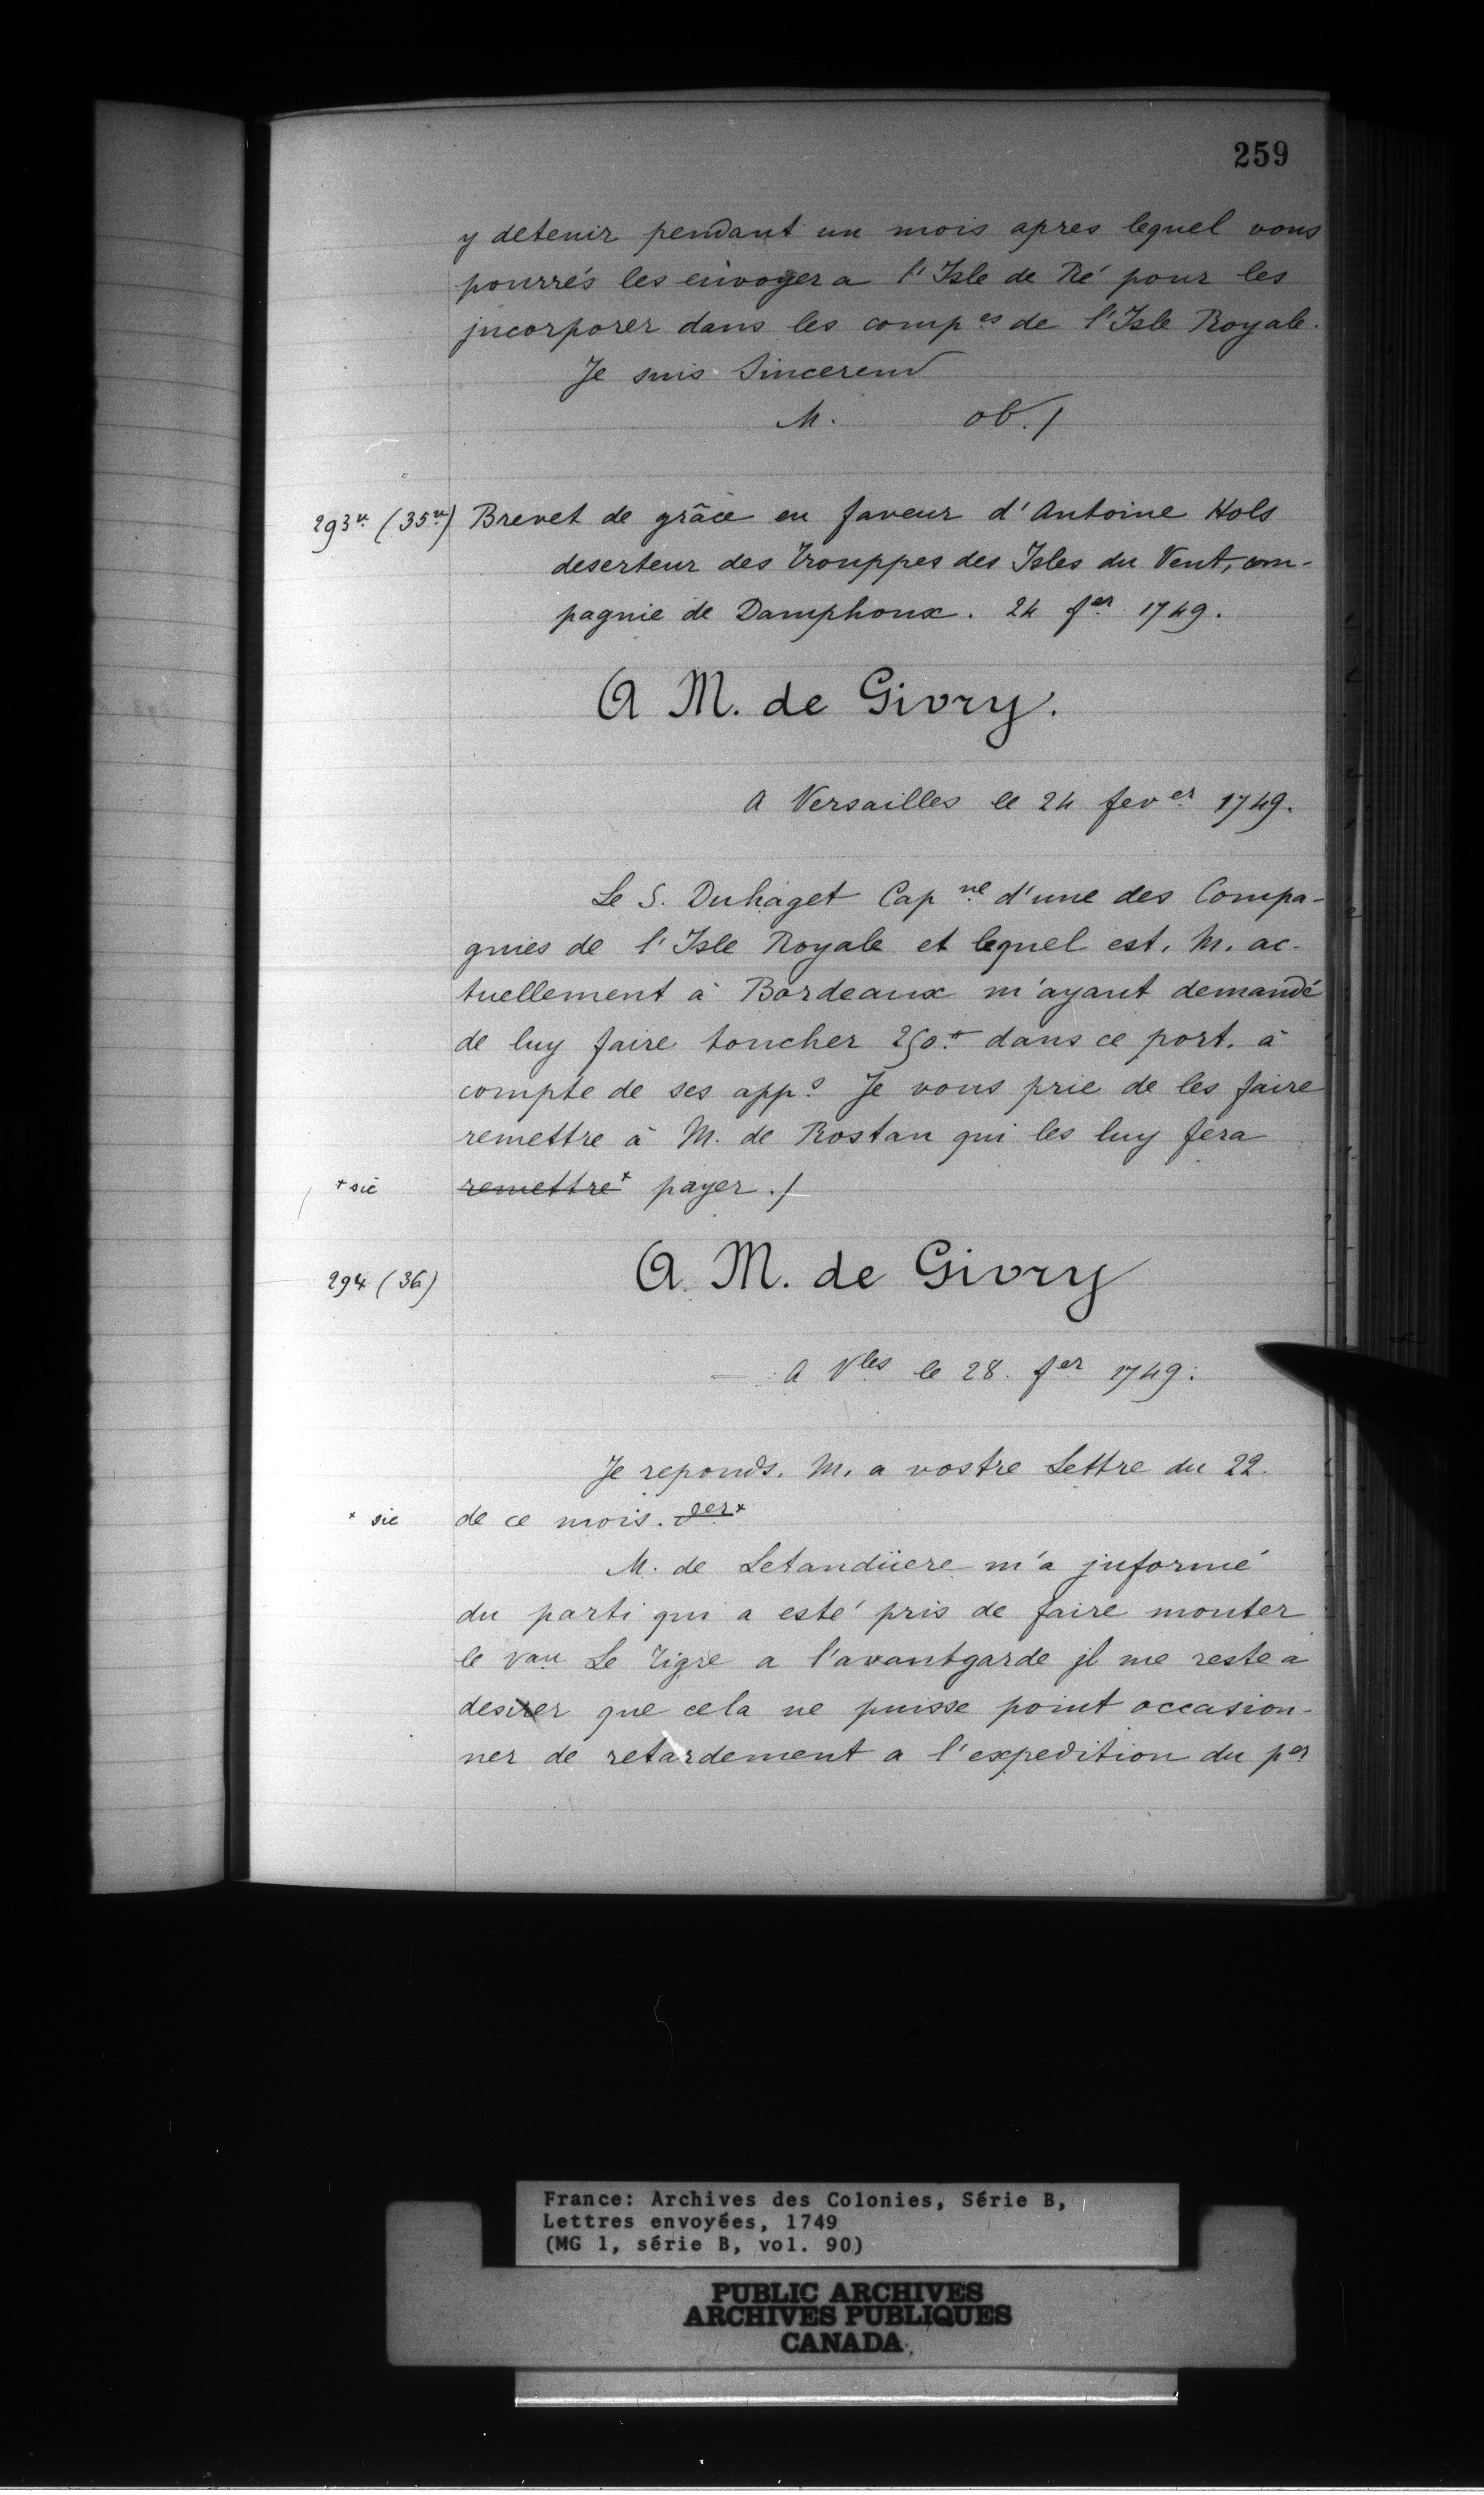 259
y detenir pendant un mois apres lequel vous
pourrés les envoyer a l'Isle de Ré pour les
jncorporer dans les comp.es de l'Isle Royale.
Je suis Sincerem
M. ob./
293v. (35v) Brevet de grâce en faveur d'Antoine Hols
deserteur des Trouppes des Isles du Vent, com-
pagnie de Damphoux. 24 f.er 1749.
A M. de Givry.
A Versailles le 24 fev.er 1749.
Le S. Duhaget Cap.ne d'une des Compa-
gnies de l'Isle Royale et lequel est. M. ac-
tuellement à Bordeaux m'ayant demandé
de luy faire toucher 250.# dans ce port. à
compte de ses app.s Je vous prie de les faire
remettre à M. de Rostan qui les luy fera
+ sic remettre+ payer ./
294 (36) A. M. de Givry
A Vles le 28. fer 1749.
Je reponds. M. a vostre Lettre du 22.
+ sic de ce mois. +
M. de Letandüere m'a jnformé
du parti qui a esté pris de faire monter
le vau Le Tigre a l'avantgarde jl me reste a
desirer que cela ne puisse point occasion-
ner de retardement a l'expedition du per
France: Archives des Colonies, Série B,
Lettres envoyées, 1749
(MG 1, série B, vol. 90)
PUBLIC ARCHIVES
ARCHIVES PUBLIQUES
CANADA